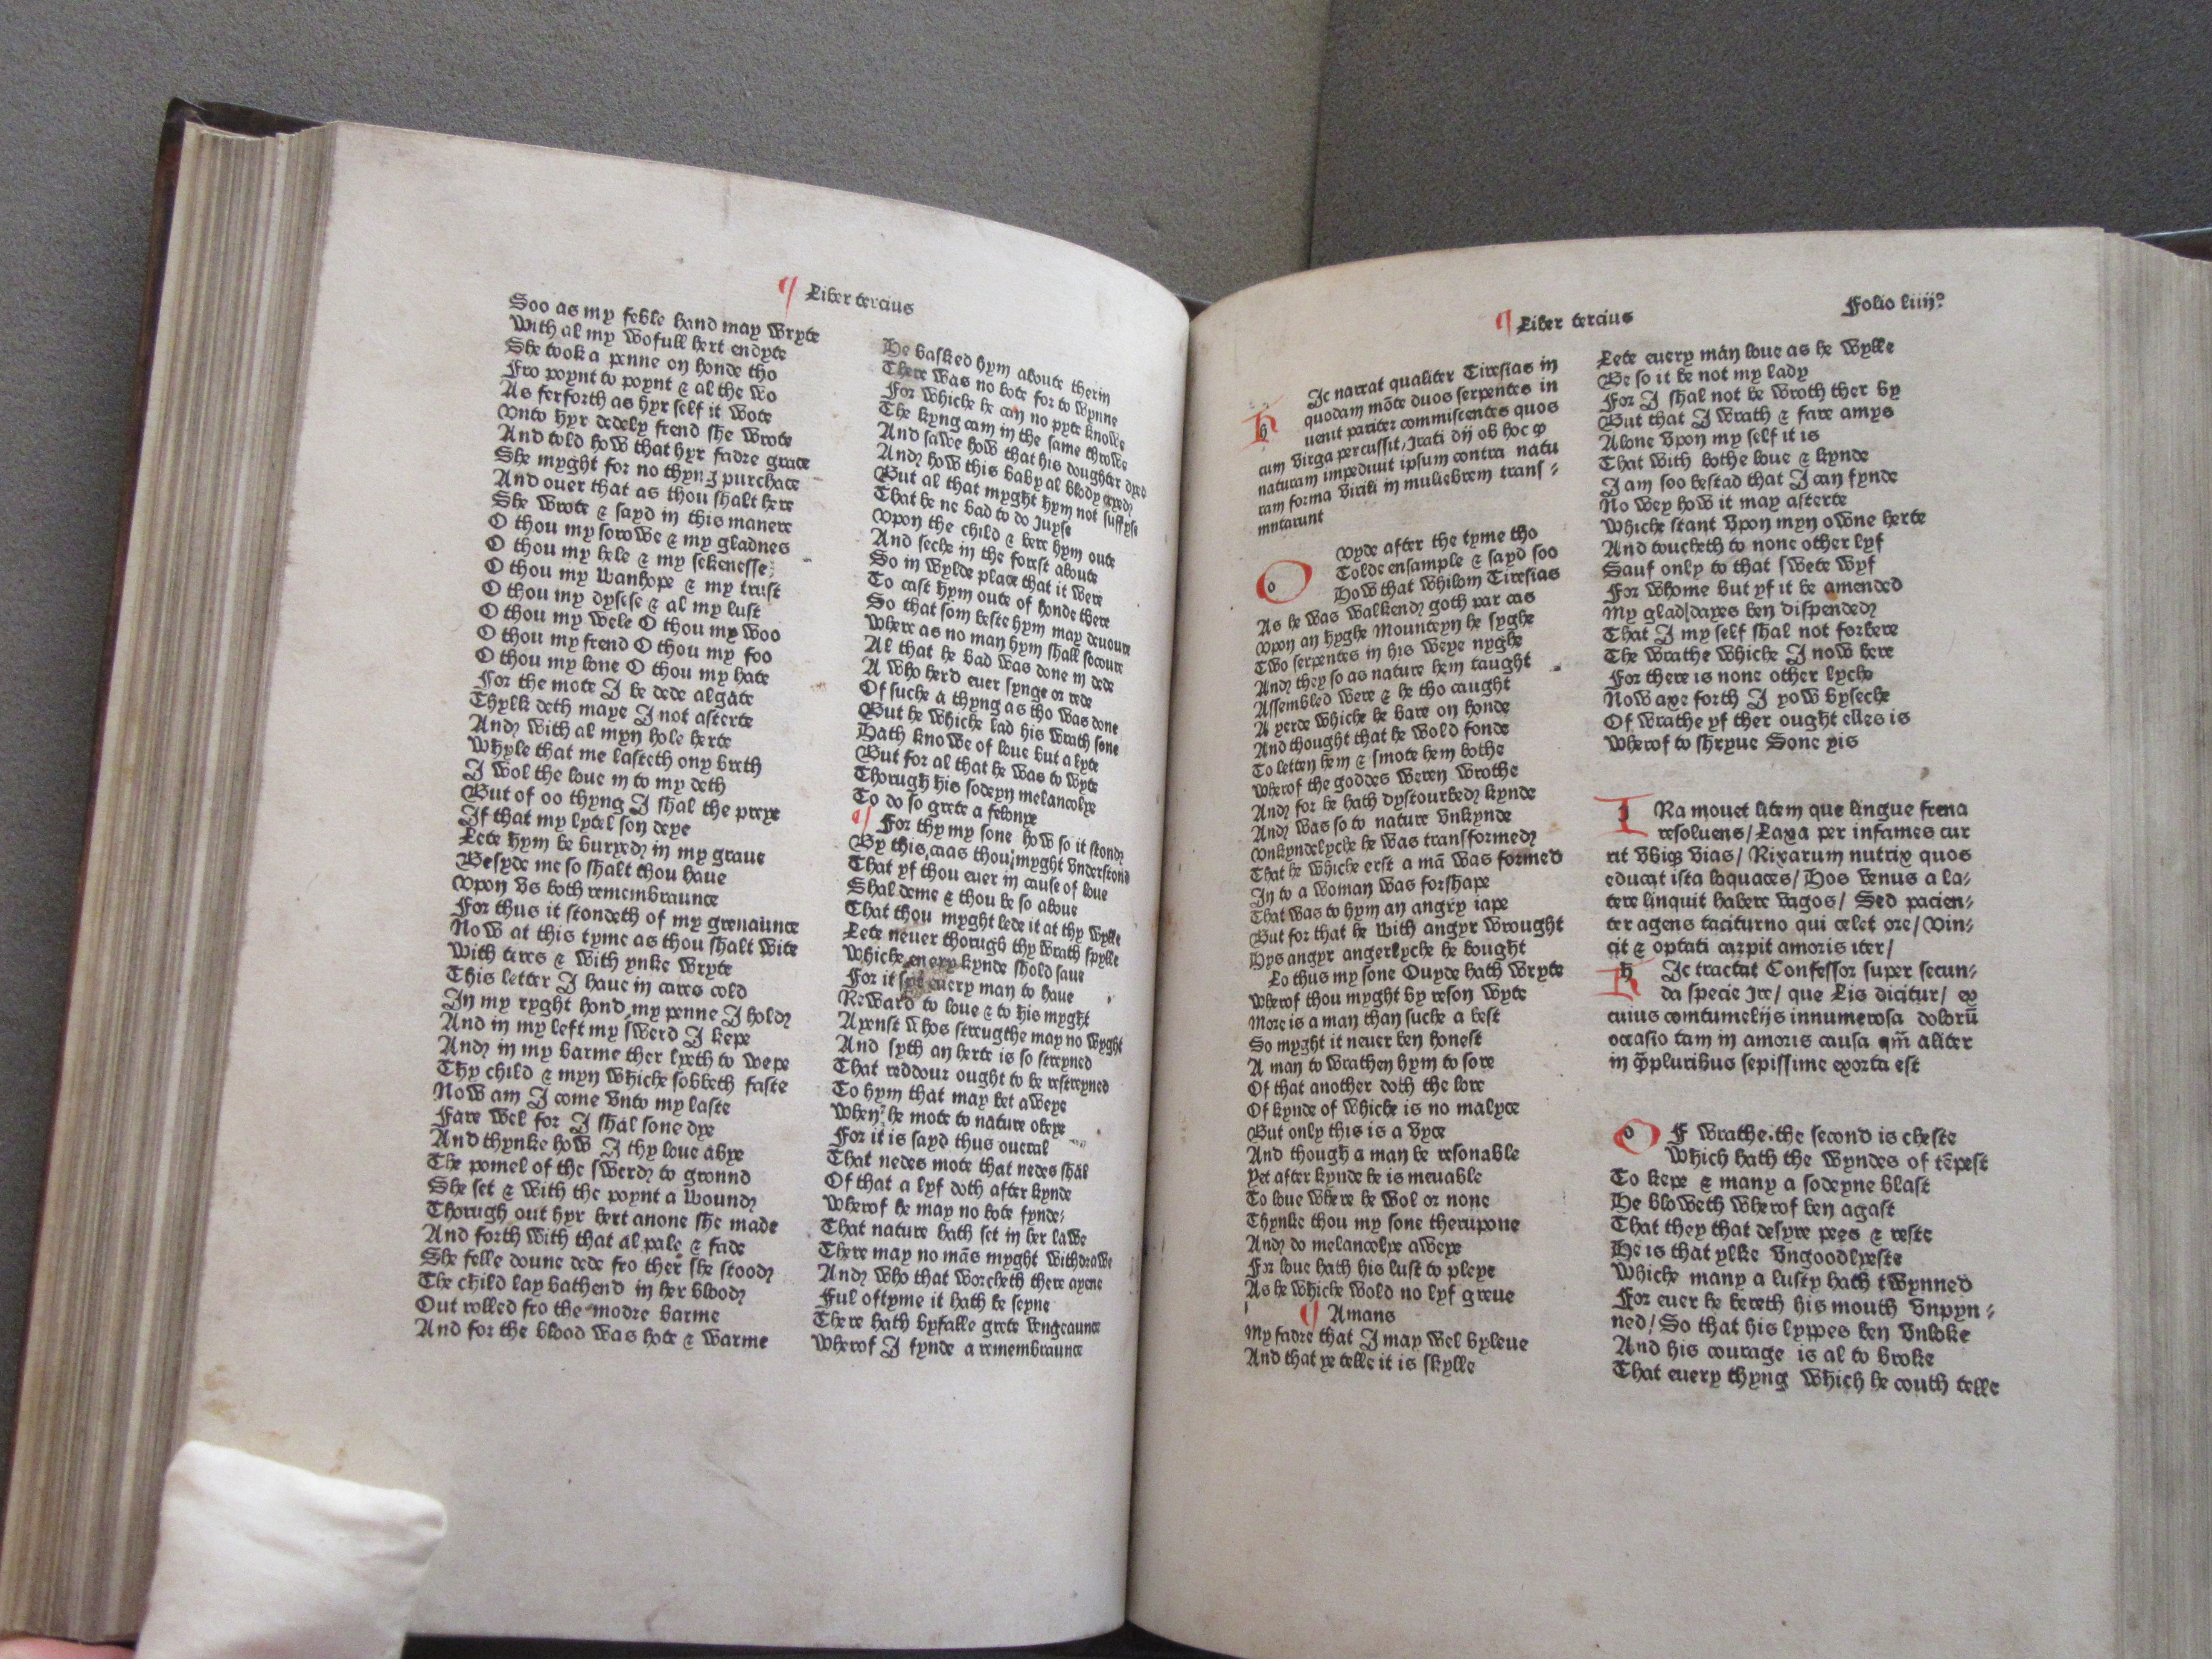 ¶ Liber tercius
Soo as my feble hand may wryte
With al my wofull hert endyte
She took a penne on honde tho
Fro poynt to poynt & al the wo
As ferforth as hyr self it wote
Vnto hyr dedely frend she wrote
And told how that hyr fadre grace
She myght for no thyng purchace
And ouer that as thou shalt here
She wrote & sayd in this manere
O thou my sorowe & my gladnes
O thou my hele & my sekenesse
O thou my wanhope & my trust
O thou my dysese & al my lust
O thou my wele O thou my woo
O thou my frend O thou my foo
O thou my loue O thou my hate
For the mote I be dede algate
Thylk deth maye I not asterte
And with al myn hole herte
Whyle that me lasteth ony breth
I wol the loue in to my deth
But of oo thyng I shal the preye
If that my lytel son deye
Lete hym be buryed in my graue
Besyde me so shalt thou haue
Vpon vs both remembraunce
For thus it stondeth of my greuaunce
Now at this tyme as thou shalt wite
With teres & with ynke wryte
This letter I haue in cares cold
In my ryght hond my penne I hold
And in my left my swerd I kepe
And in my barme ther lyeth to wepe
Thy child & myn whiche sobbeth faste
Now am I come vnto my laste
Fare wel for I shal sone dye
And thynke how I thy loue abye
The pomel of the swerd to grounд
She set & with the poynt a wound
Thorugh out hyr hert anone she made
And forth with that al pale & fade
She felle doune dede fro ther she stood
The child lay bathend in her blood
Out rolled fro the modre barme
And for the blood was hote & warme
He basked hym aboute therin
There was no bote for to wynne
For whiche he can no pyte knowe
The kyng cam in the same throwe
And sawe how that his doughter dyed
And how this baby al blody cryed
But al that myght hym not suffyse
That he ne bad to do Iuyse
Vpon the child & bere hym oute
And seche in the forest aboute
So in wylde place that it were
To cast hym oute of honde there
So that som beste hym may deuoure
Where as no man hym shall socoure
Al that he bad was done in dede
A who herd euer synge or rede
Of suche a thyng as tho was done
But he whiche lad his wrath sone
Hath knowe of loue but a lyte
But for al that he was to wyte
Thorugh his sodeyn melancolye
To do so grete a felonye
¶ For thy my sone how so it stond
By this caas thou myght vnderstond
That yf thou euer in cause of loue
Shal deme & thou be so aboue
That thou myght lede it at thy wylle
Lete neuer thorugh thy wrath spylle
Whiche euery kynde shold saue
For it euery man to haue
Reward to loue & to his myght
Ayenst whos streugthe may no wyght
And syth an herte is so streyned
That reddour ought to be restreyned
To hym that may bet aweye
When he mote to nature obeye
For it is sayd thus oueral
That nedes mote that nedes shal
Of that a lyf doth after kynde
Wherof he may no bote fynde
That nature hath set in her lawe
There may no mās myght withdrawe
And who that worcheth there ayene
Ful oftyme it hath be seyne
There hath byfalle grete vengeaunce
Wherof I fynde a remembraunce
¶ Liber tercius
Folio liiijº
HIc narrat qualiter Tiresias in
quodam mōte duos serpentes in
uenit pariter commiscentes quos
cum virga percussit/ Irati dij ob hoc ꝙ
naturam impediuit ipsum contra natu
ram forma virili in muliebrem trans⸗
mutarunt
OVyde after the tyme tho
Tolde ensample & sayd soo
How that whilom Tiresias
As he was walkend goth par cas
Vpon an hyghe Mounteyn he syghe
Two serpentes in his weye nyghe
And they so as nature hem taught
Assembled were & he tho caught
A yerde whiche he bare on honde
And thought that he wold fonde
To letten hem & smote hem bothe
Wherof the goddes weren wrothe
And for he hath dystourbed kynde
And was so to nature vnkynde
Vnkyndelyche he was transformed
That he whiche erst a mā was formed
In to a woman was forshape
That was to hym an angry iape
But for that he with angyr wrought
Hys angyr angerlyche he bought
Lo thus my sone Ouyde hath wryte
Wherof thou myght by reson wyte
More is a man than suche a best
So myght it neuer ben honest
A man to wrathen hym to sore
Of that another doth the lore
Of kynde of whiche is no malyce
But only this is a vyce
And though a man be resonable
Yet after kynde he is meuable
To loue where he wol or none
Thynke thou my sone therupone
And do melancolye aweye
For loue hath his lust to pleye
As he whiche wold no lyf greue
¶ Amans
My fadre that I may wel byleue
And that ye telle it is skylle
Lete euery man loue as he wylle
Be so it be not my lady
For I shal not be wroth ther by
But that I wrath & fare amys
Alone vpon my self it is
That with bothe loue & kynde
I am soo bestad that I can fynde
No wey how it may asterte
Whiche stant vpon myn owne herte
And toucheth to none other lyf
Sauf only to that swete wyf
For whome but yf it be amended
My glad dayes ben dispended
That I my self shal not forbere
The wrathe whiche I now bere
For there is none other lyche
Now axe forth I yow byseche
Of wrathe yf ther ought elles is
Wherof to shryue Sone yis
IRa mouet litem que lingue frena
resoluens/ Laxa per infames cur
rit vbiqꝫ vias/ Rixarum nutrix quos
educat ista loquaces/ Hos venus a la⸗
tere linquit habere vagos/ Sed pacien⸗
ter agens taciturno qui celet ore/ Vin⸗
cit & optati carpit amoris iter/
HIc tractat Confessor super secun⸗
da specie Ire/ que Lis dicitur/ ex
cuius comtumelijs innumerosa dolorū
occasio tam in amoris causa qm̄ aliter
in q̄pluribus sepissime exorta est
OF wrathe the second is cheste
Which hath the wyndes of tēpest
To kepe & many a sodeyne blast
He bloweth wherof ben agast
That they that desyre pees & reste
He is that ylke vngoodlyeste
Whiche many a lusty hath twynned
For euer he bereth his mouth vnpyn⸗
ned/ So that his lyppes ben vnloke
And his courage is al to broke
That euery thyng which he couth telle